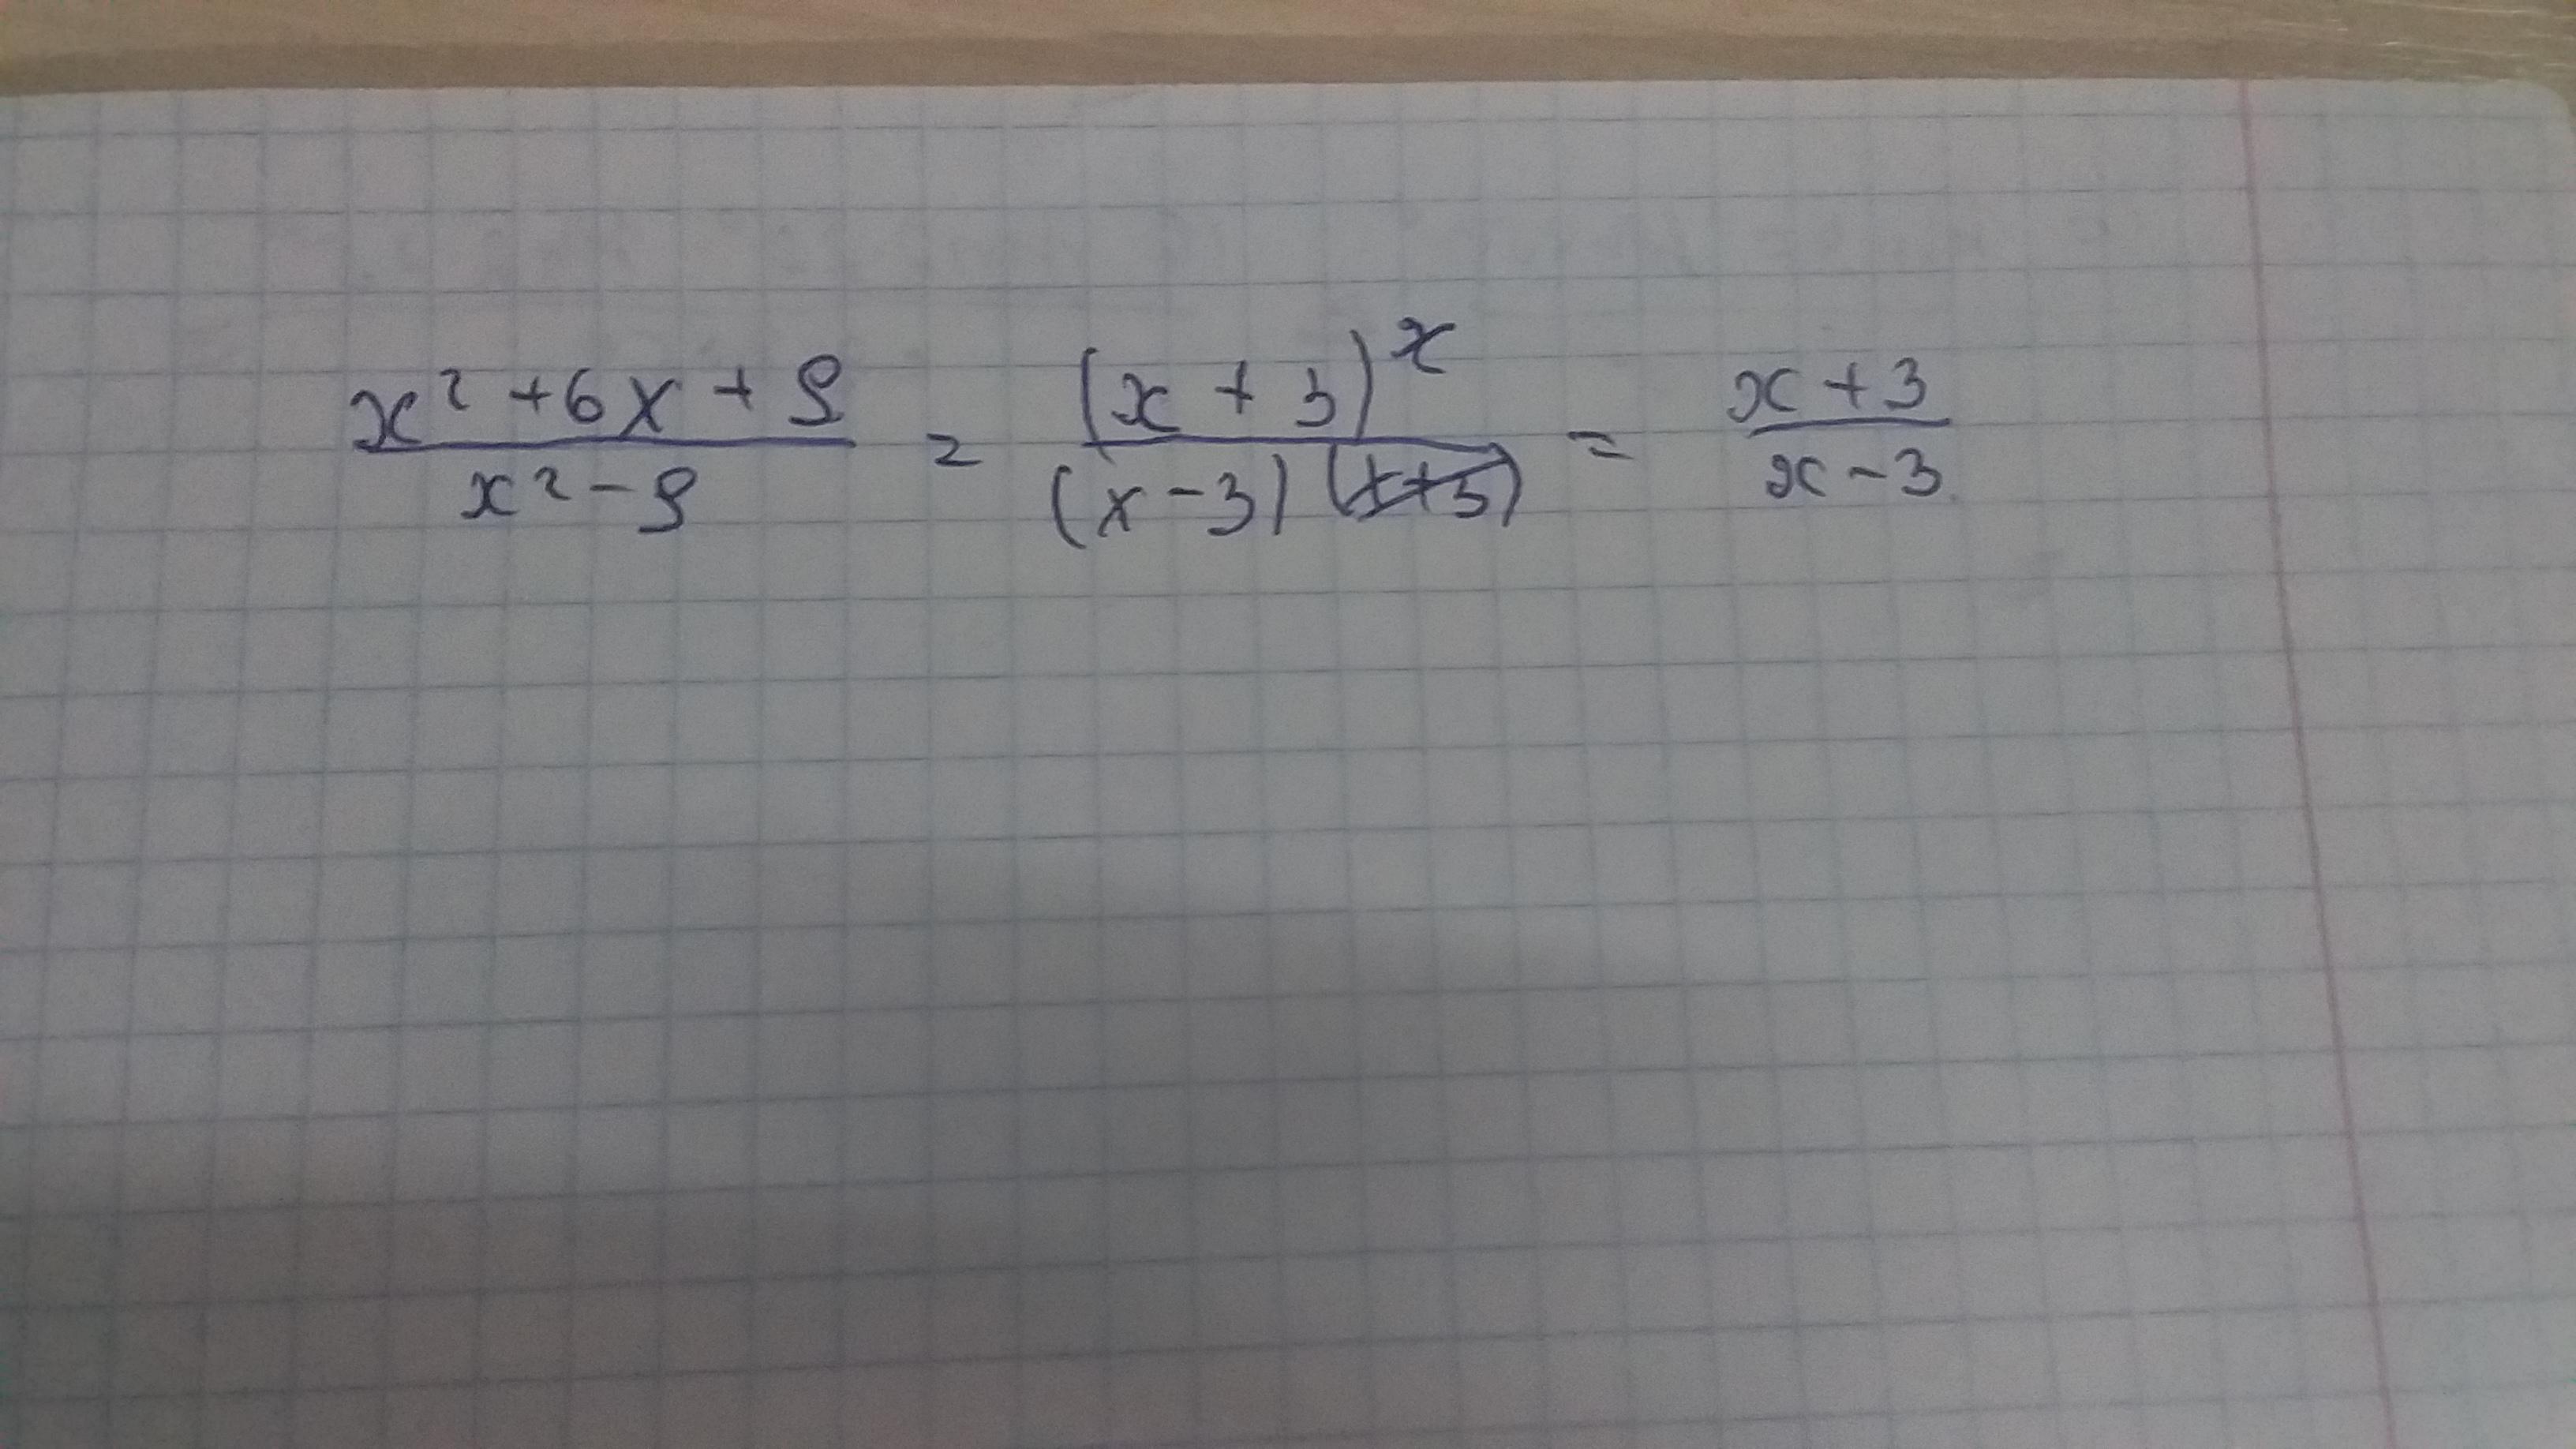 (x² + 6x + 9)/(x² - 9) = (x + 3)^2/((x - 3)(x + 3)) = (x + 3)/(x - 3)